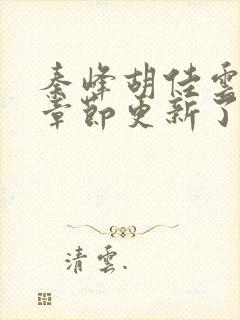 秦峰胡佳雲
章節更新了
清雲.